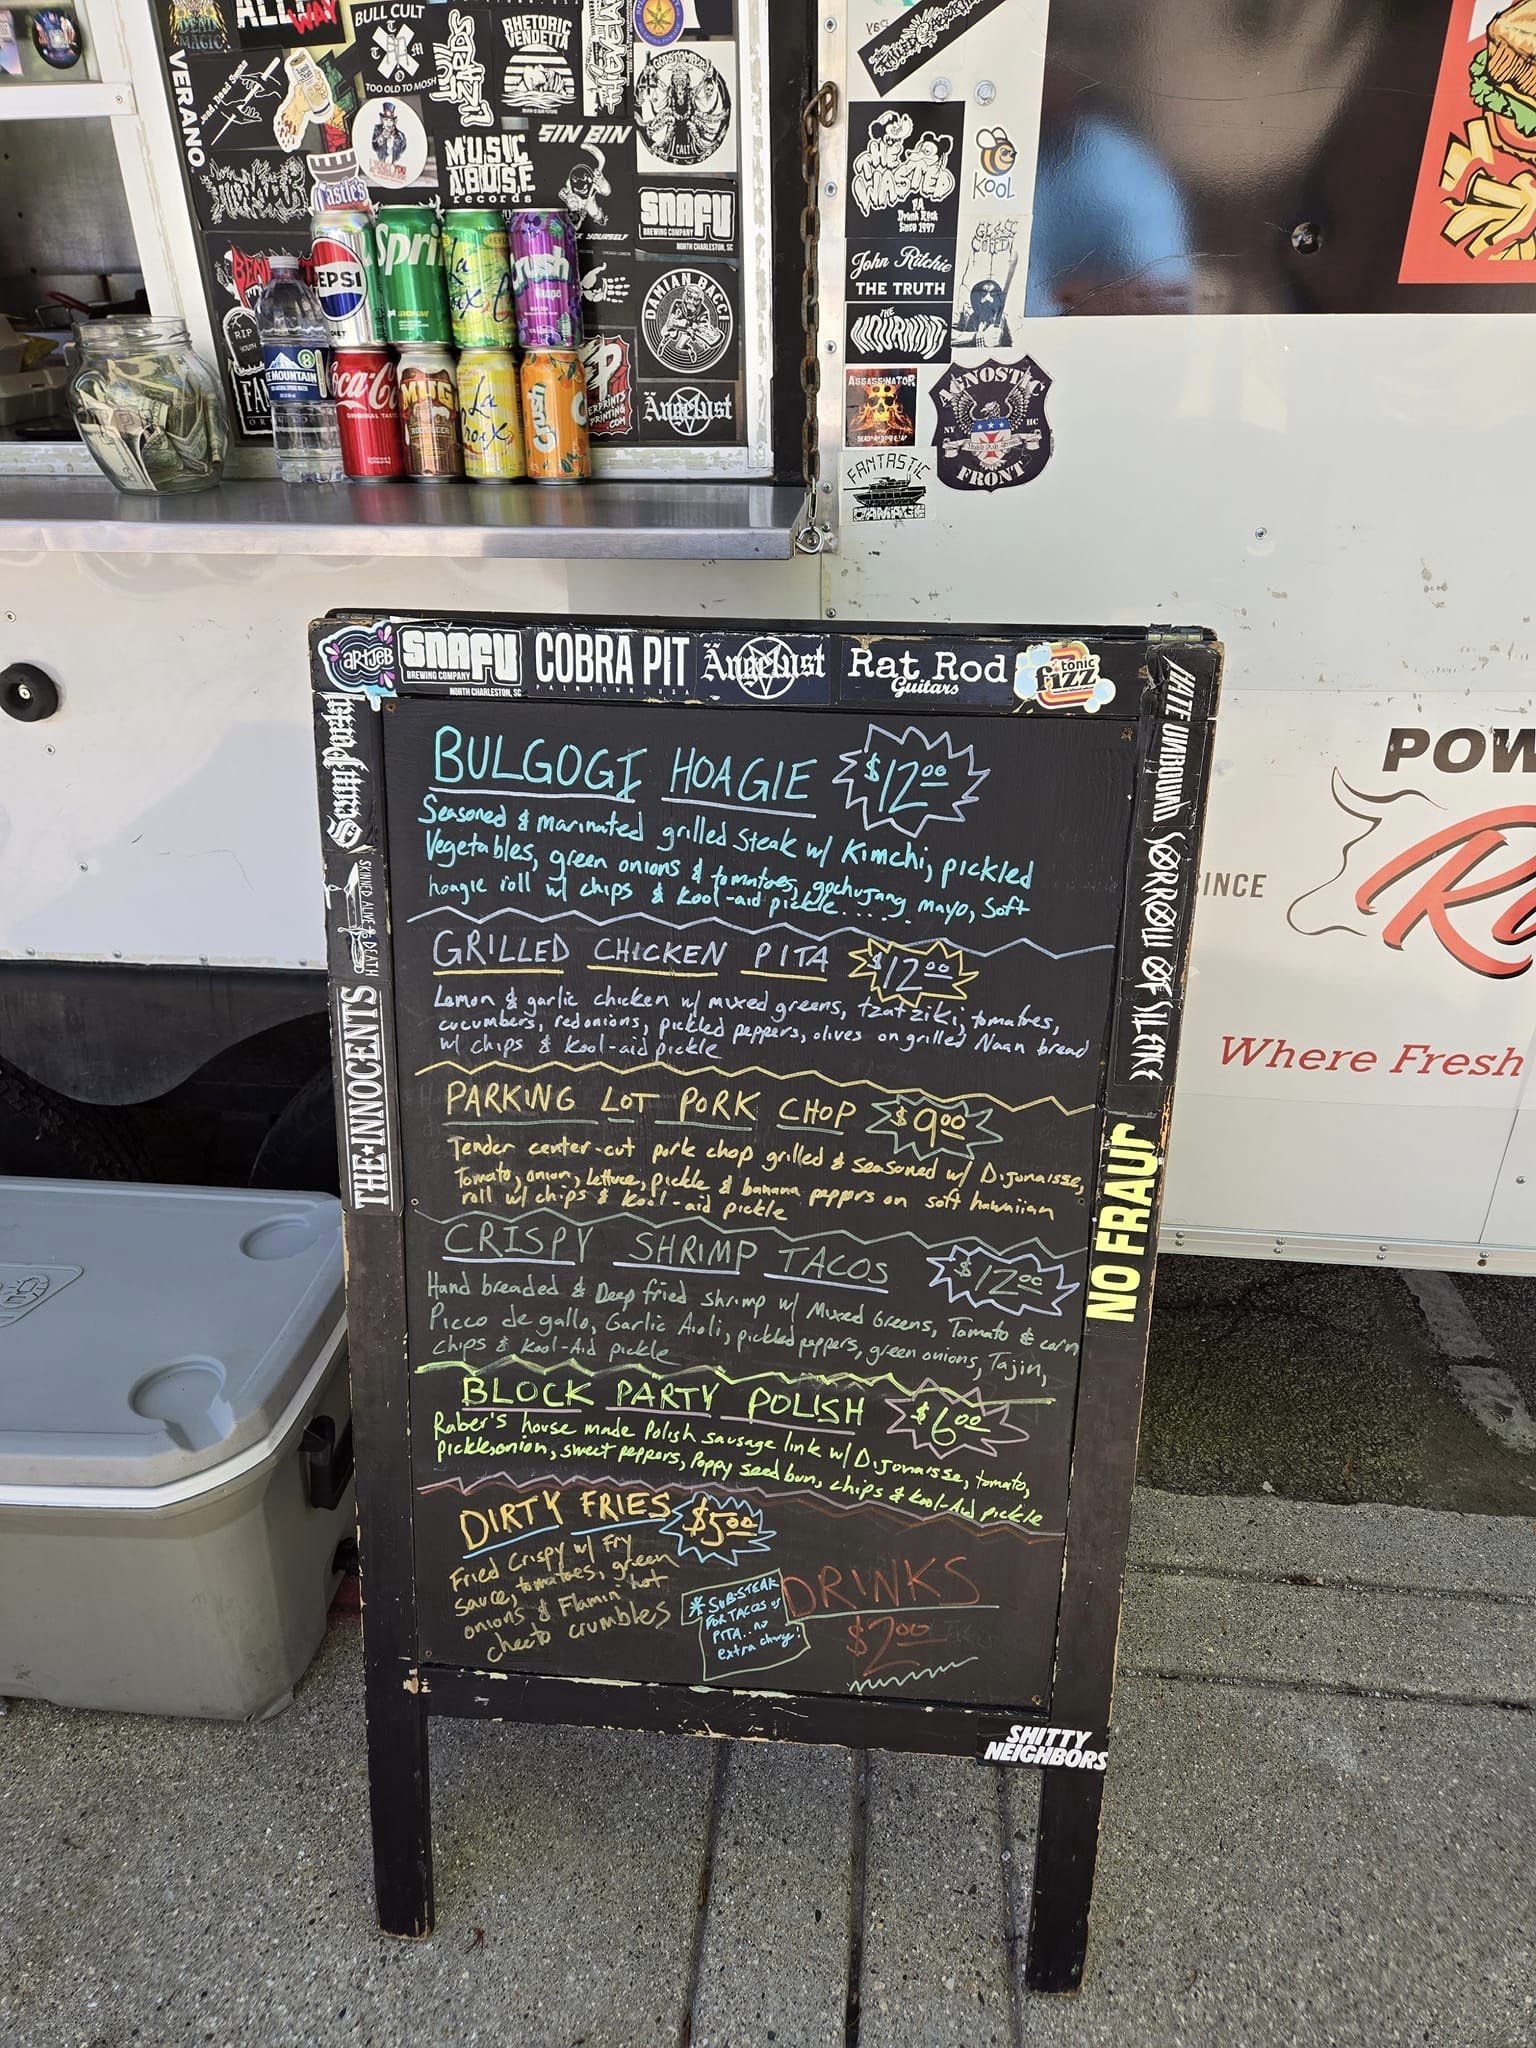 DEAD
MAGIC
ALL
WAY
BULL CULT
TOO OLD TO MOSH
RHETORIC
VENDETTA
VERANO.
MUSIC
ABUSE
records
SIN BIN
SNAFU
BREWING COMPANY
NORTH CHARLESTON, SC
DAMIAN BACCI
Castle's
DIET
PEPSI
Spri
La
Croix
Crush
RIP
YOUTH
ICE MOUNTAIN
Coca-C
ORIGINAL TAST
MUG
ROOT BEER
La
Croix
Crush
Ängelust
THE
WASTED
PA
Drunk Rock
Since 1997
KOOL
GLASS
COFFIN
John Ritchie
THE TRUTH
THE
MOURNING
ASSASSINATOR
AGNOSTIC
NY HC
FRONT
FANTASTIC
DAMAGE
ARTJEB
SNAFU
BREWING COMPANY
NORTH CHARLESTON, SC
COBRA PIT
PAINTOWN USA
Ängelust
Rat Rod
Guitars
tonic
fizz
SKINNED ALIVE DEATH
THE★INNOCENTS
HATE UNBOUND
SORROW OF SILENCE
NO FRAUD
BULGOGI HOAGIE $12.00
Seasoned & Marinated grilled Steak w/ Kimchi, pickled
Vegetables, green onions & tomatoes, gochujang mayo, Soft
hoagie roll w/ chips & Kool-aid pickle.....
GRILLED CHICKEN PITA $12.00
Lemon & garlic chicken w/ mixed greens, tzatziki, tomatoes,
cucumbers, red onions, pickled peppers, olives on grilled Naan bread
w/ chips & Kool-aid pickle
PARKING LOT PORK CHOP $9.00
Tender center-cut pork chop grilled & seasoned w/ Dijonaisse,
Tomato, onion, lettuce, pickle & banana peppers on soft hawaiian
roll w/ chips & Kool-aid pickle
CRISPY SHRIMP TACOS $12.00
Hand breaded & Deep fried shrimp w/ Mixed Greens, Tomato & corn
Picco de gallo, Garlic Aioli, pickled peppers, green onions, Tajin,
chips & Kool-Aid pickle
BLOCK PARTY POLISH $6.00
Raber's house made Polish sausage link w/ Dijonaisse, tomato,
pickle, onion, sweet peppers, Poppy seed bun, chips & Kool-Aid pickle
DIRTY FRIES $5.00
Fried Crispy w/ Fry
sauce, tomatoes, green
onions & Flamin' hot
cheeto crumbles
* SUB STEAK
FOR TACOS or
PITA.. no
extra charge!
DRINKS
$2.00
SHITTY
NEIGHBORS
POW
SINCE
Where Fresh